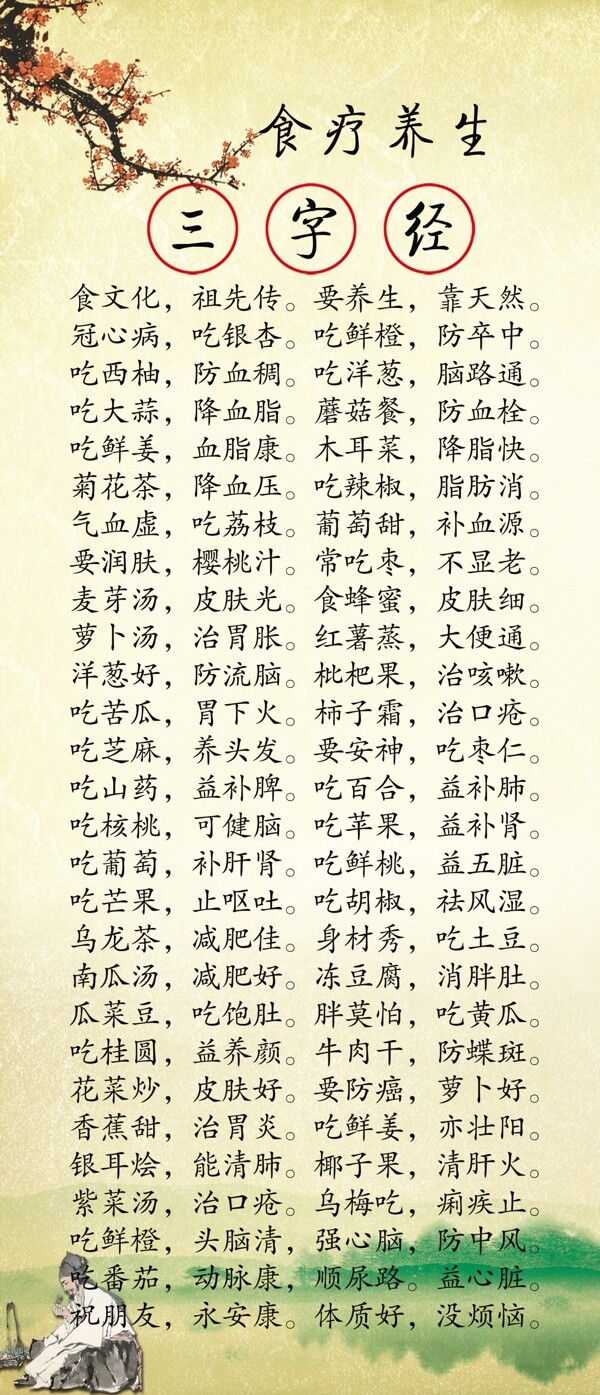 食疗养生
三字经
食文化，祖先传。要养生，靠天然。
冠心病，吃银杏。吃鲜橙，防卒中。
吃西柚，防血稠。吃洋葱，脑路通。
吃大蒜，降血脂。蘑菇餐，防血栓。
吃鲜姜，血脂康。木耳菜，降脂快。
菊花茶，降血压。吃辣椒，脂肪消。
气血虚，吃荔枝。葡萄甜，补血源。
要润肤，樱桃汁。常吃枣，不显老。
麦芽汤，皮肤光。食蜂蜜，皮肤细。
萝卜汤，治胃胀。红薯蒸，大便通。
洋葱好，防流脑。枇杷果，治咳嗽。
吃苦瓜，胃下火。柿子霜，治口疮。
吃芝麻，养头发。要安神，吃枣仁。
吃山药，益补脾。吃百合，益补肺。
吃核桃，可健脑。吃苹果，益补肾。
吃葡萄，补肝肾。吃鲜桃，益五脏。
吃芒果，止呕吐。吃胡椒，祛风湿。
乌龙茶，减肥佳。身材秀，吃土豆。
南瓜汤，减肥好。冻豆腐，消胖肚。
瓜菜豆，吃饱肚。胖莫怕，吃黄瓜。
吃桂圆，益养颜。牛肉干，防蝶斑。
花菜炒，皮肤好。要防癌，萝卜好。
香蕉甜，治胃炎。吃鲜姜，亦壮阳。
银耳烩，能清肺。椰子果，清肝火。
紫菜汤，治口疮。乌梅吃，痢疾止。
吃鲜橙，头脑清，强心脑，防中风。
吃番茄，动脉康，顺尿路。益心脏。
祝朋友，永安康。体质好，没烦恼。